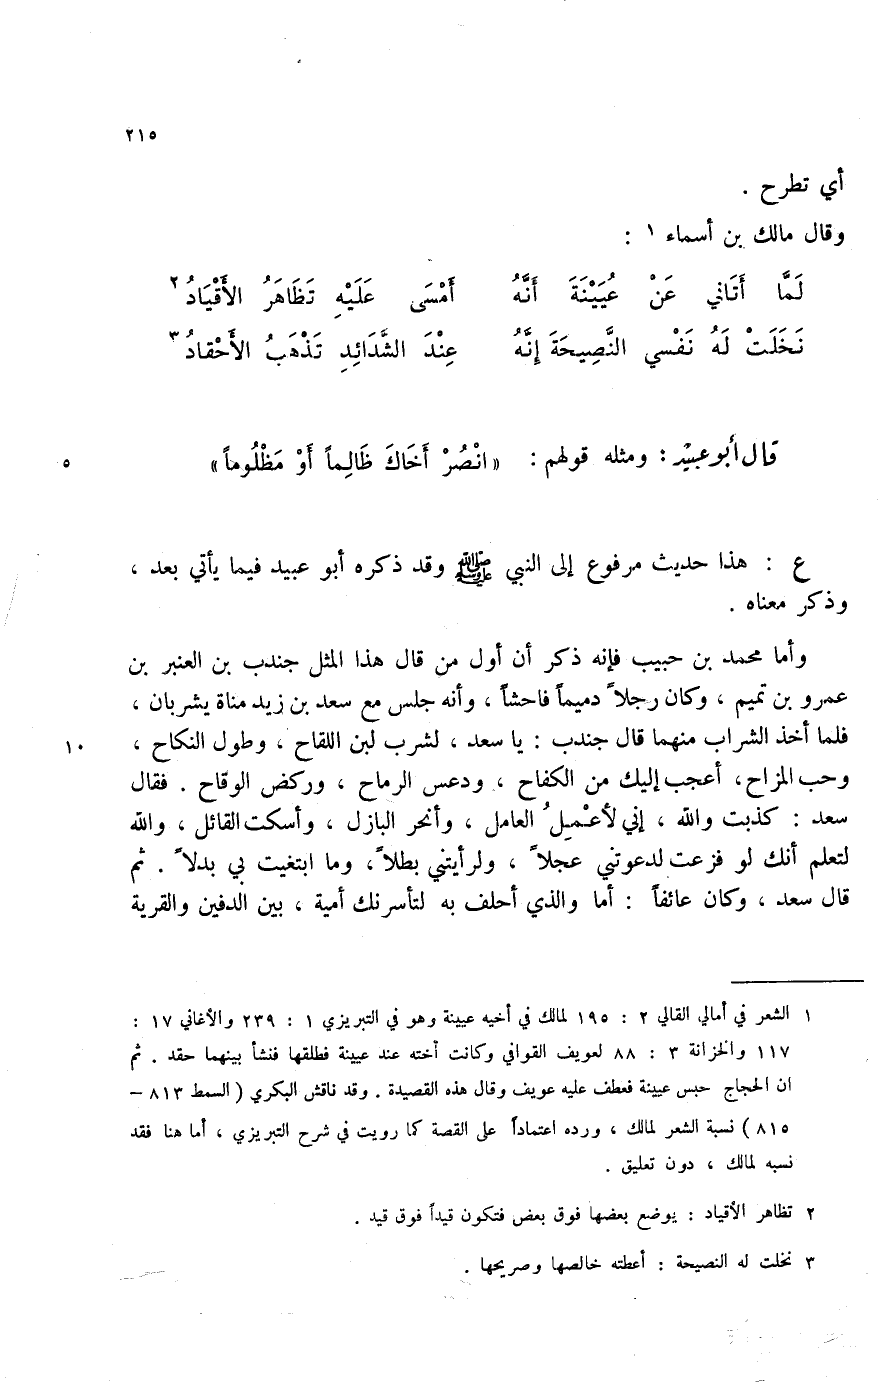 ٢١٥
أي تطرح .
وقال مالك بن أسماء ١ :
لَمَّا أَتَاني عَنْ عُيَيْنَةَ أَنَّهُ أَمْسَى عَلَيْهِ تَظَاهَرُ الأَقْيَادُ ٢
نَخَلَتْ لَهُ نَفْسي النَّصِيحَةَ إنَّهُ عِنْدَ الشَّدَائِدِ تَذْهَبُ الأَحْقادُ ٣
قال أبو عبيد : ومثله قولهم : «انْصُرْ أَخَاكَ ظَالِماً أَوْ مَظْلُوماً» ٥
ع : هذا حديث مرفوع إلى النبي ﷺ وقد ذكره أبو عبيد فيما يأتي بعد ،
وذكر معناه .
وأما محمد بن حبيب فإنه ذكر أن أول من قال هذا المثل جندب بن العنبر بن
عمرو بن تميم ، وكان رجلاً دميماً فاحشاً ، وأنه جلس مع سعد بن زيد مناة يشربان ،
فلما أخذ الشراب منهما قال جندب : يا سعد ، لشرب لبن اللقاح ، وطول النكاح ، ١٠
وحب المزاح، أعجب إليك من الكفاح ، ودعس الرماح ، وركض الوقاح . فقال
سعد : كذبت والله ، إني لأعْمِلُ العامل ، وأنحر البازل ، وأسكت القائل ، والله
لتعلم أنك لو فزعت لدعوتني عجلاً ، ولرأيتني بطلاً ، وما ابتغيت بي بدلاً . ثم
قال سعد ، وكان عائفاً : أما والذي أحلف به لتأسرنك أمية ، بين الدفين والقرية
١ الشعر في أمالي القالي ٢ : ١٩٥ لمالك في أخيه عيينة وهو في التبريزي ١ : ٢٣٩ والأغاني ١٧ :
١١٧ والخزانة ٣ : ٨٨ لعويف القوافي وكانت أخته عند عيينة فطلقها فنشأ بينهما حقد . ثم
ان الحجاج حبس عيينة فعطف عليه عويف وقال هذه القصيدة . وقد ناقش البكري ( السمط ٨١٣ –
٨١٥ ) نسبة الشعر لمالك ، ورده اعتماداً على القصة كما رويت في شرح التبريزي ، أما هنا فقد
نسبه لمالك ، دون تعليق .
٢ تظاهر الأقياد : يوضع بعضها فوق بعض فتكون قيداً فوق قيد .
٣ نخلت له النصيحة : أعطته خالصها وصريحها .